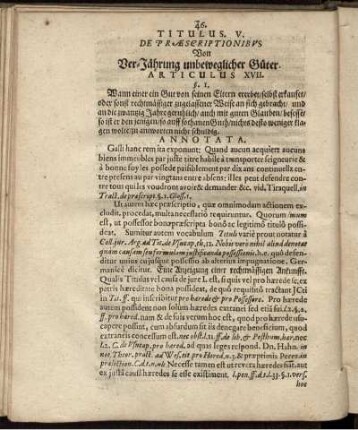 46.
TITULUS. V.
DE PRÆSCRIPTIONIBVS
Von
Ver-Jährung unbeweglicher Güter.
ARTICULUS XVII.
§. I.
Wann einer ein Gut von seinen Eltern ererbet/ selbst erkauffet/
oder sonst rechtmässiger zugelassener Weise an sich gebracht/ und
an die zwantzig Jahr geruhlich/ auch mit gutem Glauben/ besessen/
so ist er den jenigen so auff solchanen Guth/ nichts desto weniger kla-
gen wolte zu antworten nicht schuldig.
ANNOTATA.
Galli hanc rem ita exponunt: Quand aucun acquiert aucuns
biens immeubles par juste titre habile à transporter seigneurie &
à bonne foy les possede paisiblement par dix ans continuells en-
tre presens au par vingt ans entre absent; illes peut defendre con-
tre tous qui les voudront avoir & demander &c. vid. Tiraquell. in
Tract. de præscript. §. 1. Gloss. 1.
Ut autem hæc præscriptio, quæ omnimodam actionem ex-
cludit, procedat, multa necessario requiruntur. Quorum
est, ut possessor bonæ præscripta bonò ac legitimò titulô possi-
deat. Sumitur autem vocabulum Tituli variè prout notatur à
Coll. jur. Arg. ad Tit. de Vsucap. th. 12. Nobis verò nihil aliud denotat
quàm causam seu formulam justificandæ possessionis. h. e. quô defen-
ditur unius cujusque possessio ab alterius impugnatione. Ger-
manicè dicitur. Eine Anzeigung einer rechtmässigen Ankunfft.
Qualis Titulus vel causa de jure I. est, si quis vel pro hærede i. ex
patris hæreditate bona possideat, de quô requisitô tractant JCti
in Tit. ff. qui inscribitur pro hærede & pro Possessore. Pro hærede
autem possident non solùm hæredes extranei sed etiam sui.
ff. pro hæred. nam & de suis verum hoc est, quod pro hærede usu-
capere possint, cum absurdum sit iis denegare beneficium, quod
extraneis concessum est.
l. 2. C. de Vsucap. pro hæred. ad quas leges respond. Dn. Hahn. in
not. Theor. pract. ad Wes. tit. pro Hered. n. 3. & præprimis Perez. in
prælection. C. d. t. n. ult. Necesse tamen est ut revera hæredes sint, aut
ex justa causa hæredes se esse existiment.
hoc